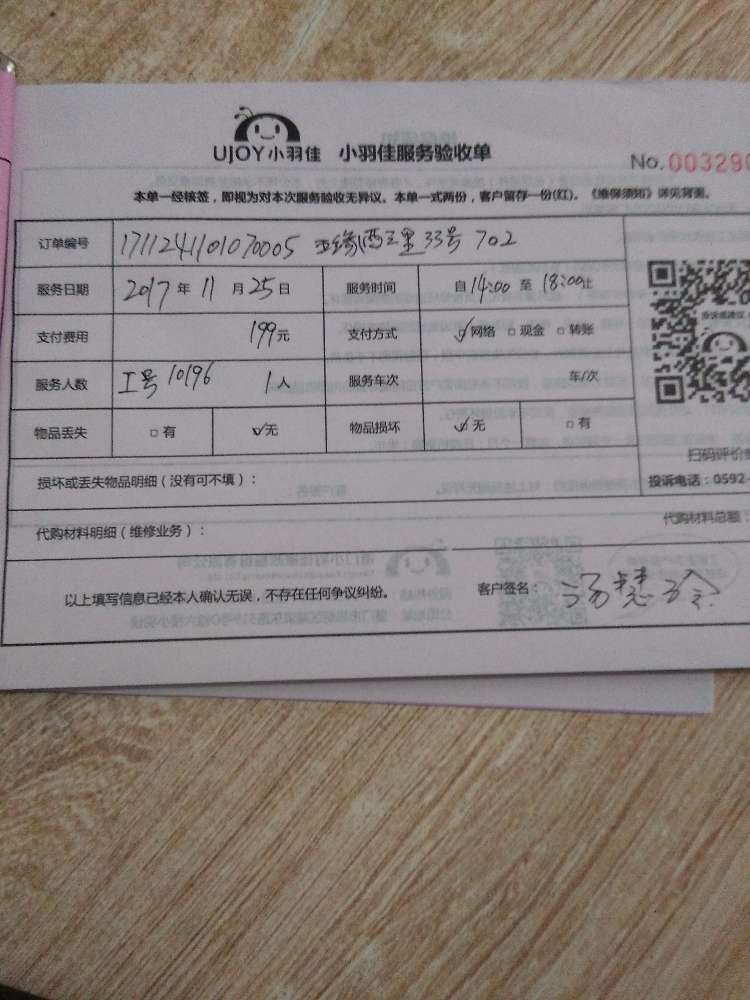 UJOY小羽佳 小羽佳服务验收单
No.003290
本单一经核签，即视为对本次服务验收无异议。本单一式两份，客户留存一份(红)。《维保须知》详见背面。
订单编号 1711241101070005 西三里33号 702
服务日期 2017年11月25日 服务时间 自14:00至18:00止
支付费用 199元 支付方式 ☑网络 □现金 □转账
服务人数 工号10196 1人 服务车次 车/次
物品丢失 □有 ☑无 物品损坏 ☑无 □有
投诉或建议
扫码评价
投诉电话：0592-
损坏或丢失物品明细（没有可不填）：
代购材料明细（维修业务）：
代购材料总额：
以上填写信息已经本人确认无误，不存在任何争议纠纷。 客户签名： 汤慧玲